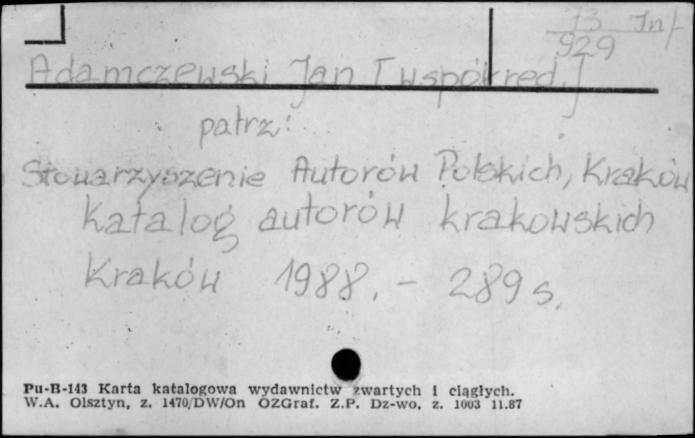 13 Inf
929
Adamczewski Jan [współred.]
patrz:
Stowarzyszenie Autorów Polskich, Kraków
Katalog autorów krakowskich
Kraków 1988. - 289 s.
Pu-B-143 Karta katalogowa wydawnictw zwartych i ciągłych.
W.A. Olsztyn, z. 1470/DW/On OZGraf. Z.P. Dz-wo, z. 1003 11.87